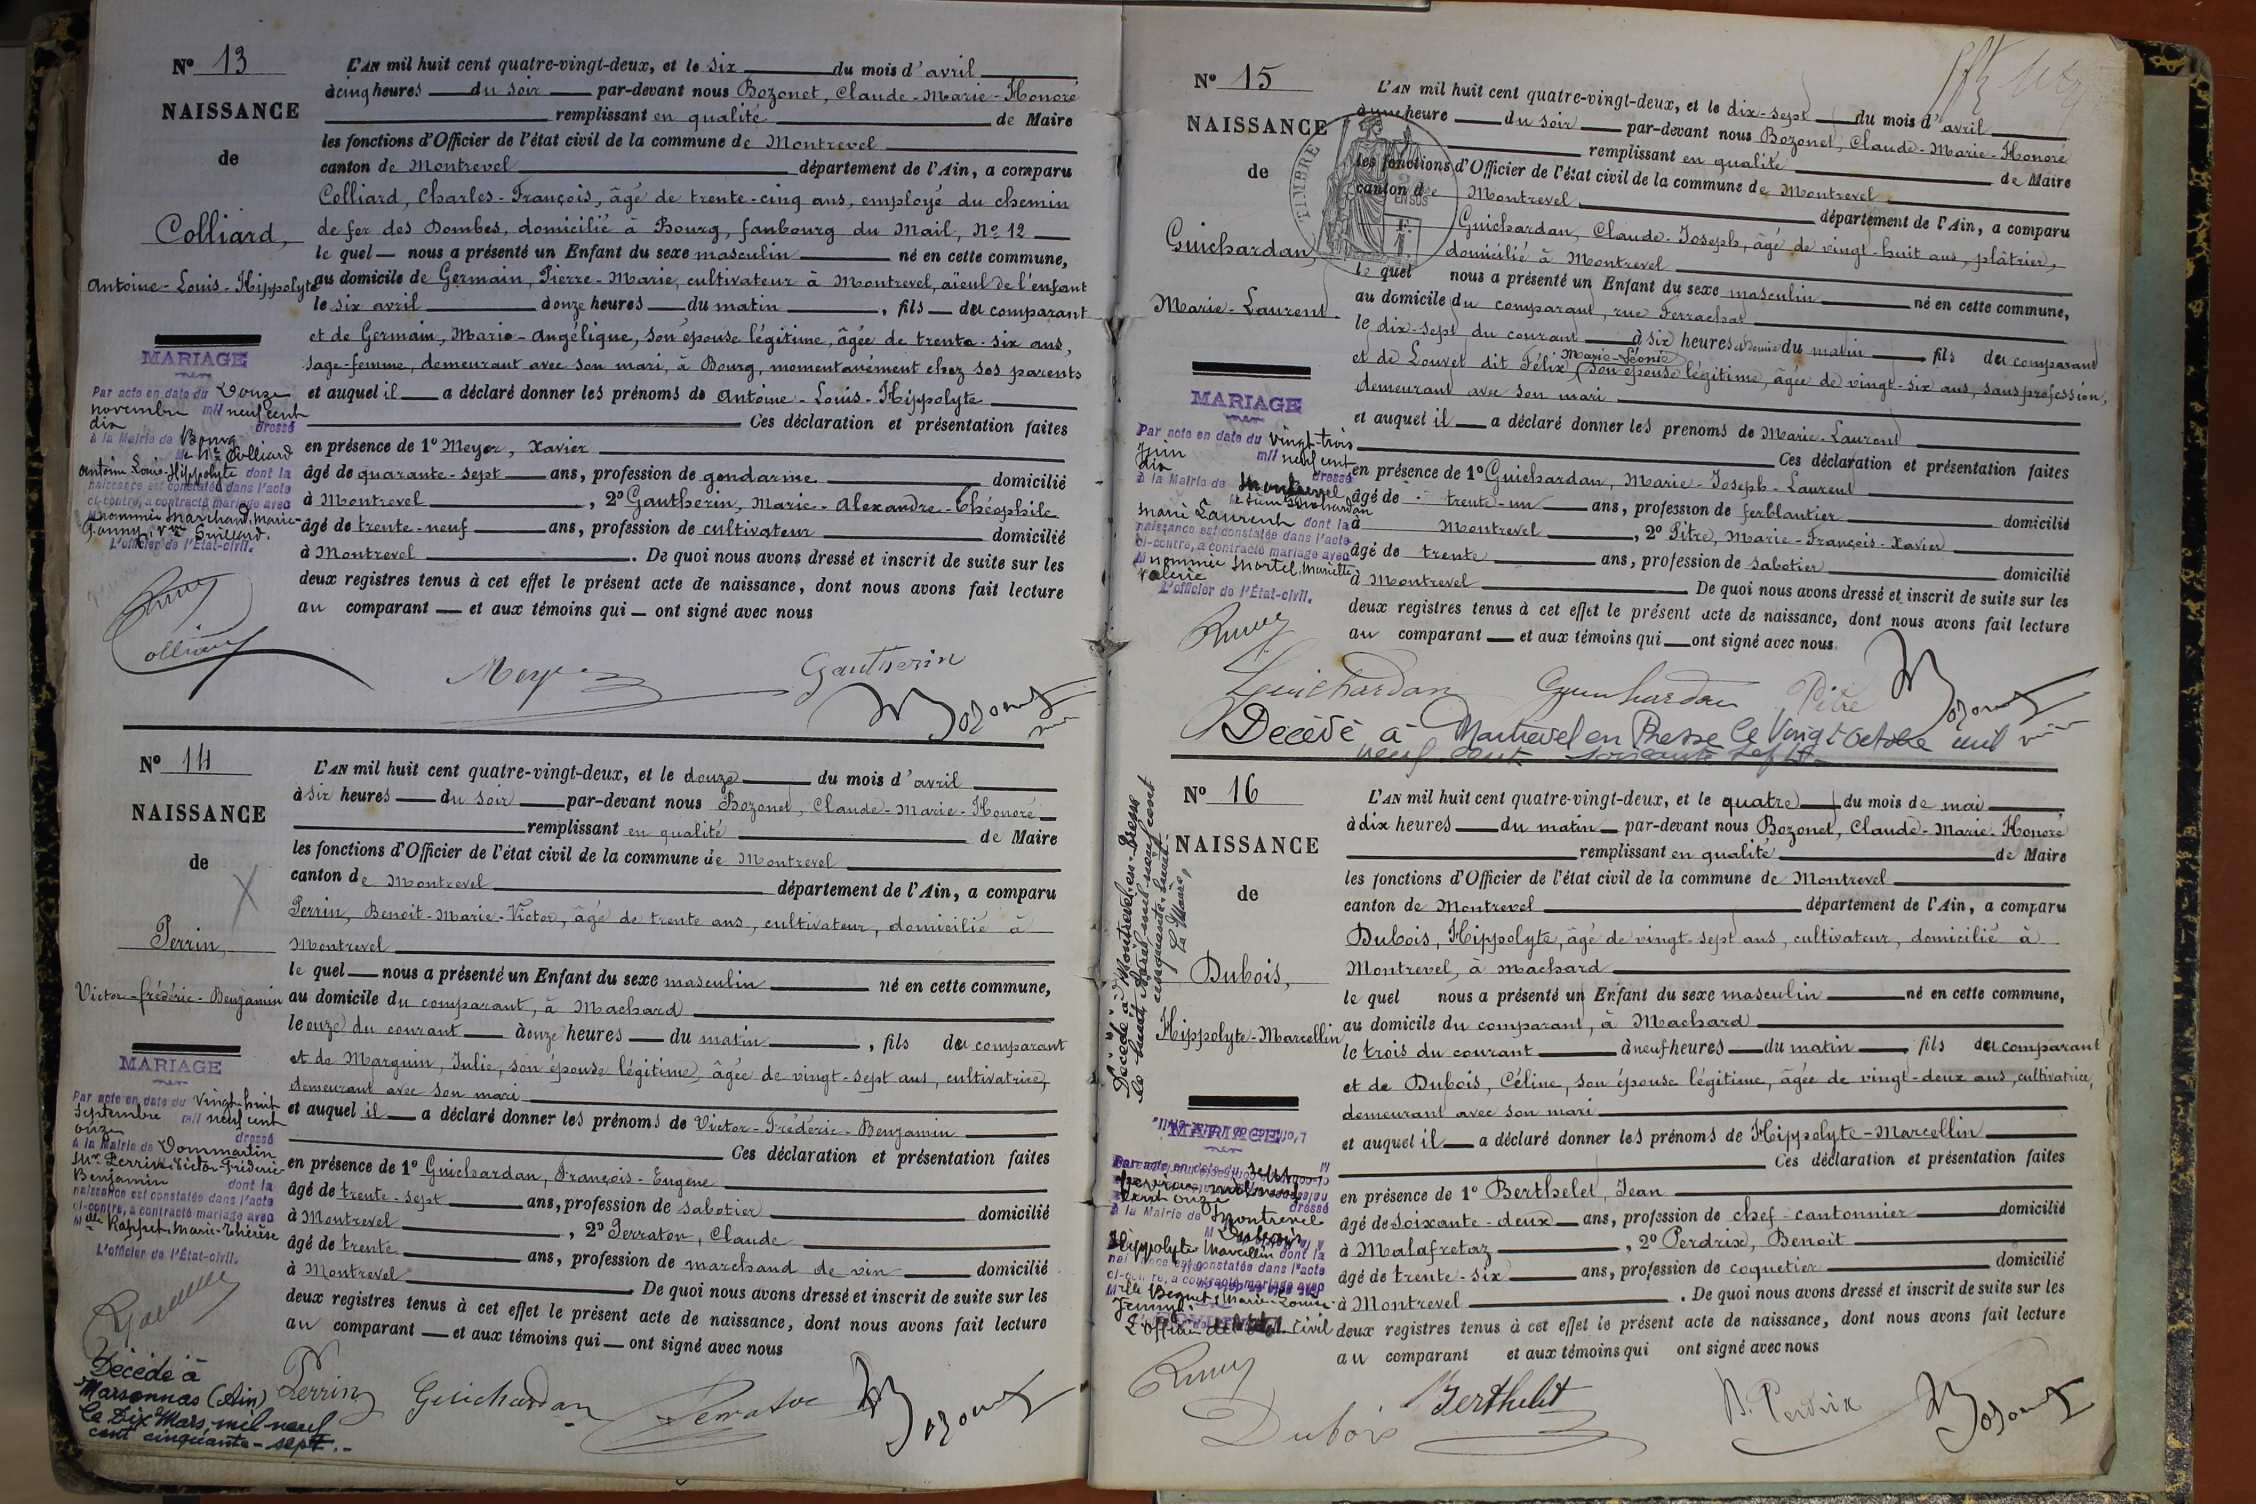 N° 13
NAISSANCE
de
Colliard,
Antoine-Louis-Hippolyte
MARIAGE
Par acte en date du Douze
novembre mil neuf cent
dix dressé
à la Mairie de Bourg
M Colliard
Antoine Louis-Hippolyte dont la
naissance est constatée dans l'acte
ci-contre, a contracté mariage avec
nommée Marchand, Marie-
L'officier de l'État-civil.
L'AN mil huit cent quatre-vingt-deux, et le six du mois d'avril
à cinq heures du soir par-devant nous Bozonet, Claude-Marie-Honoré
remplissant en qualité de Maire
les fonctions d'Officier de l'état civil de la commune de Montrevel
canton de Montrevel département de l'Ain, a comparu
Colliard, Charles-François, âgé de trente-cinq ans, employé du chemin
de fer des Dombes, domicilié à Bourg, faubourg du Mail, N° 12
le quel nous a présenté un Enfant du sexe masculin né en cette commune,
au domicile de Germain, Pierre-Marie, cultivateur à Montrevel, aïeul de l'enfant
le six avril à onze heures du matin, fils du comparant
et de Germain, Marie-Angélique, son épouse légitime, âgée de trente-six ans,
sage-femme, demeurant avec son mari, à Bourg, momentanément chez ses parents
et auquel il a déclaré donner les prénoms de Antoine-Louis-Hippolyte
Ces déclaration et présentation faites
en présence de 1° Meyer, Xavier
âgé de quarante-sept ans, profession de gendarme domicilié
à Montrevel, 2° Gautherin, Marie-Alexandre-Théophile
âgé de trente-neuf ans, profession de cultivateur domicilié
à Montrevel. De quoi nous avons dressé et inscrit de suite sur les
deux registres tenus à cet effet le présent acte de naissance, dont nous avons fait lecture
au comparant et aux témoins qui ont signé avec nous
Colliard
Meyer Gautherin
Bozonet
N° 14
NAISSANCE
de
Perrin,
Victor-Frédéric-Benjamin
MARIAGE
Par acte en date du vingt-huit
septembre mil neuf cent
onze dressé
à la Mairie de Dommartin
Mr Perrin Victor-Frédéric-
Benjamin dont la
naissance est constatée dans l'acte
ci-contre, a contracté mariage avec
Mlle Rappet, Marie-Thérèse
L'officier de l'État-civil.
Décédé à
Marsonnas (Ain)
le Dix Mars mil neuf
cent cinquante-sept.-
L'AN mil huit cent quatre-vingt-deux, et le douze du mois d'avril
à six heures du soir par-devant nous Bozonet, Claude-Marie-Honoré
remplissant en qualité de Maire
les fonctions d'Officier de l'état civil de la commune de Montrevel
canton de Montrevel département de l'Ain, a comparu
Perrin, Benoit-Marie-Victor, âgé de trente ans, cultivateur, domicilié à
Montrevel
le quel nous a présenté un Enfant du sexe masculin né en cette commune,
au domicile du comparant, à Machard
le onze du courant à onze heures du matin, fils du comparant
et de Marguin, Julie, son épouse légitime, âgée de vingt-sept ans, cultivatrice,
demeurant avec son mari
et auquel il a déclaré donner les prénoms de Victor-Frédéric-Benjamin
Ces déclaration et présentation faites
en présence de 1° Guichardan, François-Eugène
âgé de trente-sept ans, profession de sabotier domicilié
à Montrevel, 2° Ferraton, Claude
âgé de trente ans, profession de marchand de vin domicilié
à Montrevel. De quoi nous avons dressé et inscrit de suite sur les
deux registres tenus à cet effet le présent acte de naissance, dont nous avons fait lecture
au comparant et aux témoins qui ont signé avec nous
Perrin Guichardan Bozonet
N° 15
NAISSANCE
de
Guichardan,
Marie-Laurent
TIMBRE
MARIAGE
Par acte en date du vingt-trois
juin mil neuf cent
dix dressé
à la Mairie de Montrevel
M Guichardan
Marie Laurent dont la
naissance est constatée dans l'acte
ci-contre, a contracté mariage avec
nommée Martel, Mariette
Valérie
L'officier de l'État-civil.
L'AN mil huit cent quatre-vingt-deux, et le dix-sept du mois d'avril
à une heure du soir par-devant nous Bozonet, Claude-Marie-Honoré
remplissant en qualité de Maire
les fonctions d'Officier de l'état civil de la commune de Montrevel
canton de Montrevel département de l'Ain, a comparu
Guichardan, Claude-Joseph, âgé de vingt-huit ans, plâtrier,
domicilié à Montrevel
le quel nous a présenté un Enfant du sexe masculin né en cette commune,
au domicile du comparant, rue Ferrachat
le dix-sept du courant à six heures et demie du matin, fils du comparant
et de Louvet dit Félix Marie-Léonie, son épouse légitime, âgée de vingt-six ans, sans profession,
demeurant avec son mari
et auquel il a déclaré donner les prenoms de Marie-Laurent
Ces déclaration et présentation faites
en présence de 1° Guichardan, Marie-Joseph-Laurent
âgé de trente-un ans, profession de ferblantier domicilié
à Montrevel, 2° Pitre, Marie-François-Xavier
âgé de trente ans, profession de sabotier domicilié
à Montrevel De quoi nous avons dressé et inscrit de suite sur les
deux registres tenus à cet effet le présent acte de naissance, dont nous avons fait lecture
au comparant et aux témoins qui ont signé avec nous.
Guichardan Guichardan Pitre Bozonet
Décédé à Montrevel en Bresse le vingt octobre mil
neuf cent soixante sept
N° 16
NAISSANCE
de
Dubois,
Hippolyte-Marcellin
Décédé à Montrevel-en-Bresse
le huit Avril mil neuf cent
cinquante-huit.
Le Maire,
MARIAGE
Par acte en date du
à la Mairie de Montrevel dressé
M Dubois
Hippolyte Marcellin dont la
constatée dans l'acte
a contracté mariage avec
Mlle Marie-Louise
L'officier de l'État Civil
L'AN mil huit cent quatre-vingt-deux, et le quatre du mois de mai
à dix heures du matin par-devant nous Bozonet, Claude-Marie-Honoré
remplissant en qualité de Maire
les fonctions d'Officier de l'état civil de la commune de Montrevel
canton de Montrevel département de l'Ain, a comparu
Dubois, Hippolyte, âgé de vingt-sept ans, cultivateur, domicilié à
Montrevel, à Machard
le quel nous a présenté un Enfant du sexe masculin né en cette commune,
au domicile du comparant, à Machard
le trois du courant à neuf heures du matin, fils du comparant
et de Dubois, Céline, son épouse légitime, âgée de vingt-deux ans, cultivatrice,
demeurant avec son mari
et auquel il a déclaré donner les prénoms de Hippolyte-Marcellin
Ces déclaration et présentation faites
en présence de 1° Berthelet, Jean
âgé de soixante-deux ans, profession de chef-cantonnier domicilié
à Malafretaz, 2° Perdrix, Benoit
âgé de trente-six ans, profession de coquetier domicilié
à Montrevel. De quoi nous avons dressé et inscrit de suite sur les
deux registres tenus à cet effet le présent acte de naissance, dont nous avons fait lecture
au comparant et aux témoins qui ont signé avec nous
Dubois Berthelet B. Perdrix Bozonet